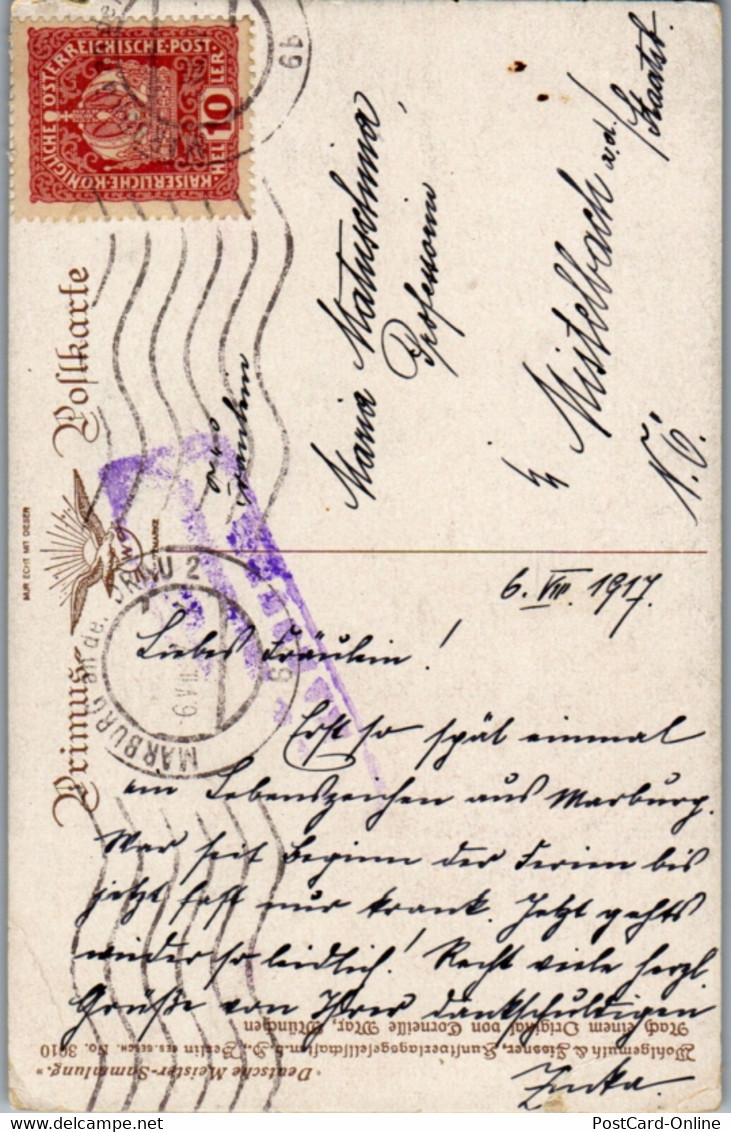 KAISERLICHE·KÖNIGLICHE ÖSTERREICHISCHE·POST
HELLER 10
19
Primus Postkarte
NUR ECHT MIT DIESER
MARBURG an der DRAU 2
6.VII
Maria Matuschina,
Professorin
Mistelbach a. d./Staatsb.
N. Ö.
6. VII. 1917.
Liebes Fräulein!
Erst so spät einmal
ein Lebenszeichen aus Marburg.
War seit Beginn der Ferien bis
jetzt fast nur krank. Jetzt gehts
wieder so leidlich! Recht viele herzl.
Grüße von Ihrer dankschuldigen
Zinka.
„Deutsche Meister-Sammlung."
Wohlgemuth & Lissner, Kunstverlagsgesellschaft m.b.H., Berlin GES. GESCH. No. 3010
Nach einem Original von Corneille Max, München
PostCard-Online